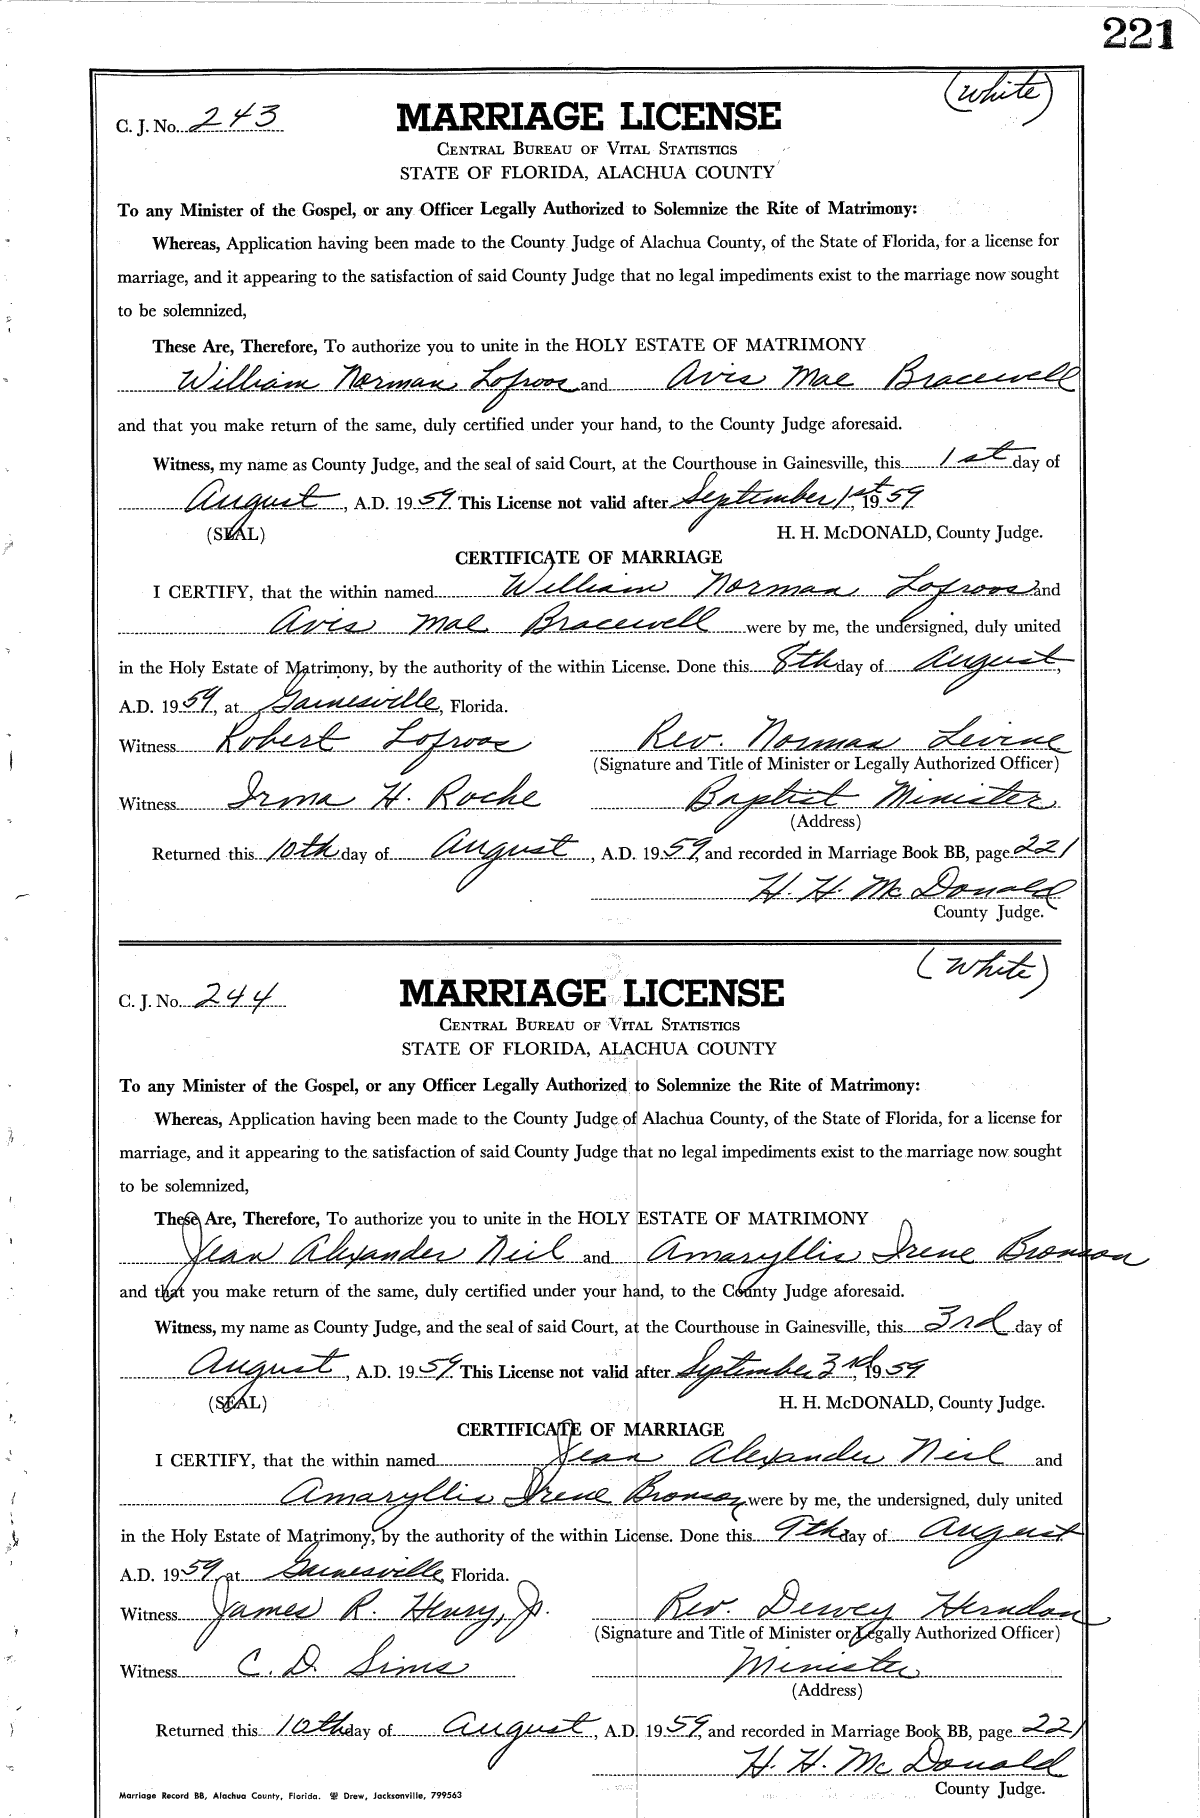 221
(White)
C. J. No. 243
MARRIAGE LICENSE
CENTRAL BUREAU OF VITAL STATISTICS
STATE OF FLORIDA, ALACHUA COUNTY
To any Minister of the Gospel, or any Officer Legally Authorized to Solemnize the Rite of Matrimony:
Whereas, Application having been made to the County Judge of Alachua County, of the State of Florida, for a license for
marriage, and it appearing to the satisfaction of said County Judge that no legal impediments exist to the marriage now sought
to be solemnized,
These Are, Therefore, To authorize you to unite in the HOLY ESTATE OF MATRIMONY
William Norman Lofroos and Avis Mae Bracewell
and that you make return of the same, duly certified under your hand, to the County Judge aforesaid.
Witness, my name as County Judge, and the seal of said Court, at the Courthouse in Gainesville, this 1st day of
August, A.D. 1959. This License not valid after September 1st, 1959
(SEAL) H. H. McDONALD, County Judge.
CERTIFICATE OF MARRIAGE
I CERTIFY, that the within named William Norman Lofroos and
Avis Mae Bracewell were by me, the undersigned, duly united
in the Holy Estate of Matrimony, by the authority of the within License. Done this 8th day of August,
A.D. 1959, at Gainesville, Florida.
Witness Robert Lofroos Rev. Norman Levine
(Signature and Title of Minister or Legally Authorized Officer)
Witness Irma H. Roche Baptist Minister
(Address)
Returned this 10th day of August, A.D. 1959, and recorded in Marriage Book BB, page 221
H. H. McDonald
County Judge.
(White)
C. J. No. 244
MARRIAGE LICENSE
CENTRAL BUREAU OF VITAL STATISTICS
STATE OF FLORIDA, ALACHUA COUNTY
To any Minister of the Gospel, or any Officer Legally Authorized to Solemnize the Rite of Matrimony:
Whereas, Application having been made to the County Judge of Alachua County, of the State of Florida, for a license for
marriage, and it appearing to the satisfaction of said County Judge that no legal impediments exist to the marriage now sought
to be solemnized,
These Are, Therefore, To authorize you to unite in the HOLY ESTATE OF MATRIMONY
Jean Alexander Neil and Amaryllis Irene Bronson
and that you make return of the same, duly certified under your hand, to the County Judge aforesaid.
Witness, my name as County Judge, and the seal of said Court, at the Courthouse in Gainesville, this 3rd day of
August, A.D. 1959. This License not valid after September 3rd, 1959
(SEAL) H. H. McDONALD, County Judge.
CERTIFICATE OF MARRIAGE
I CERTIFY, that the within named Jean Alexander Neil and
Amaryllis Irene Bronson were by me, the undersigned, duly united
in the Holy Estate of Matrimony, by the authority of the within License. Done this 9th day of August
A.D. 1959, at Gainesville, Florida.
Witness James R. Henry, Jr. Rev. Dewey Herndon
(Signature and Title of Minister or Legally Authorized Officer)
Witness C. D. Sims Minister
(Address)
Returned this 10th day of August, A.D. 1959, and recorded in Marriage Book BB, page 221
H. H. McDonald
County Judge.
Marriage Record BB, Alachua County, Florida. Drew, Jacksonville, 799563